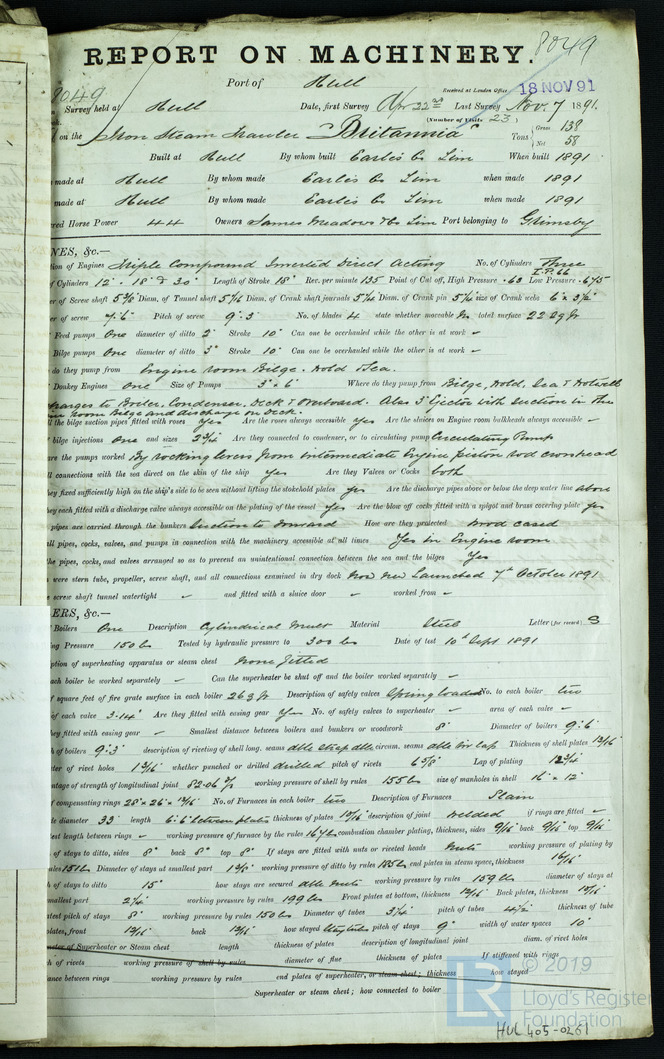 8049
REPORT ON MACHINERY.
Port of Hull
Received at London Office 18 NOV 91
8049
Survey held at Hull Date, first Survey Apr 22nd Last Survey Nov. 7 1891.
(Number of Visits 23)
on the Iron Steam Trawler "Britannia" Tons { Gross 138
Net 58
Built at Hull By whom built Earle's Co Lim When built 1891
made at Hull By whom made Earle's Co Lim when made 1891
made at Hull By whom made Earle's Co Lim when made 1891
red Horse Power 44 Owners James Meadows & Co Lim Port belonging to Grimsby
NES, &c.—
tion of Engines Triple Compound Inverted Direct Acting No. of Cylinders Three
I.P. 66
f Cylinders 12" . 18" & 30" Length of Stroke 18" Rev. per minute 135 Point of Cut off, High Pressure .63 Low Pressure .675
er of Screw shaft 5 5/8 Diam. of Tunnel shaft 5 1/4 Diam. of Crank shaft journals 5 3/4 Diam. of Crank pin 5 3/4 size of Crank webs 6" x 3 1/2"
er of screw 7.6" Pitch of screw 9.3" No. of blades 4 state whether moveable No total surface 22 Sq ft
Feed pumps One diameter of ditto 2" Stroke 10" Can one be overhauled while the other is at work –
Bilge pumps One diameter of ditto 3" Stroke 10" Can one be overhauled while the other is at work –
do they pump from Engine room Bilge. Hold & Sea.
Donkey Engines One Size of Pumps 3" x 6" Where do they pump from Bilge, Hold, Sea & Hotwell
charges to Boiler, Condenser, Deck & Overboard. Also 3" Ejector with suction in the
ne room Bilge and discharge on Deck.
ll the bilge suction pipes fitted with roses Yes Are the roses always accessible Yes Are the sluices on Engine room bulkheads always accessible –
f bilge injections One and sizes 2 3/4 Are they connected to condenser, or to circulating pump Circulating Pump
are the pumps worked By rocking levers from intermediate Engine piston rod crosshead
ll connections with the sea direct on the skin of the ship Yes Are they Valves or Cocks both
hey fixed sufficiently high on the ship's side to be seen without lifting the stokehold plates Yes Are the discharge pipes above or below the deep water line above
hey each fitted with a discharge valve always accessible on the plating of the vessel Yes Are the blow off cocks fitted with a spigot and brass covering plate Yes
pipes are carried through the bunkers Suction to Forward How are they protected Wood cased
all pipes, cocks, valves, and pumps in connection with the machinery accessible at all times Yes in Engine room
the pipes, cocks, and valves arranged so as to prevent an unintentional connection between the sea and the bilges Yes
were stern tube, propeller, screw shaft, and all connections examined in dry dock Now new Launched 7th October 1891
e screw shaft tunnel watertight – and fitted with a sluice door – worked from –
ERS, &c.—
f Boilers One Description Cylindrical Mult Material Steel Letter (for record) S
ng Pressure 150 lbs Tested by hydraulic pressure to 300 lbs Date of test 10th Sept 1891
ption of superheating apparatus or steam chest None fitted
each boiler be worked separately – Can the superheater be shut off and the boiler worked separately –
f square feet of fire grate surface in each boiler 26 3 ft Description of safety valves Spring loaded No. to each boiler two
of each valve 3.14" Are they fitted with easing gear Yes No. of safety valves to superheater – area of each valve –
hey fitted with easing gear – Smallest distance between boilers and bunkers or woodwork 8" Diameter of boilers 9'.6"
h of boilers 9'.3" description of riveting of shell long. seams dble strap dble circum. seams dble riv lap Thickness of shell plates 13/16
ter of rivet holes 1 3/16 whether punched or drilled drilled pitch of rivets 6 5/8" Lap of plating
ntage of strength of longitudinal joint 82.06 working pressure of shell by rules 155 lbs size of manholes in shell 16" x 12"
f compensating rings 28" x 26" x 13/16 No. of Furnaces in each boiler two Description of Furnaces Plain
de diameter 33" length 6'.6" between plates thickness of plates description of joint welded if rings are fitted –
test length between rings – working pressure of furnace by the rules combustion chamber plating, thickness, sides 9/16 back 9/16 top 9/16
h of stays to ditto, sides 8" back 8" top 8" If stays are fitted with nuts or riveted heads Nuts working pressure of plating by
rules 151 lbs Diameter of stays at smallest part 1 3/8" working pressure of ditto by rules 185 lbs end plates in steam space, thickness
h of stays to ditto 15" how stays are secured dble nuts working pressure by rules 159 lbs diameter of stays at
smallest part 2 1/2 working pressure by rules 199 lbs Front plates at bottom, thickness 13/16 Back plates, thickness 13/16
test pitch of stays 8" working pressure by rules 150 lbs Diameter of tubes 3 1/4 pitch of tubes 4 1/2 thickness of tube
plates, front 13/16 back 13/16 how stayed Stay tubes pitch of stays 9" width of water spaces 10"
meter of Superheater or Steam chest length thickness of plates description of longitudinal joint diam. of rivet holes
h of rivets working pressure of shell by rules diameter of flue thickness of plates If stiffened with rings
ance between rings working pressure by rules end plates of superheater, or steam chest; thickness how stayed
Superheater or steam chest; how connected to boiler
© 2019
LR
Lloyd's Register
Foundation
HUL405-0261